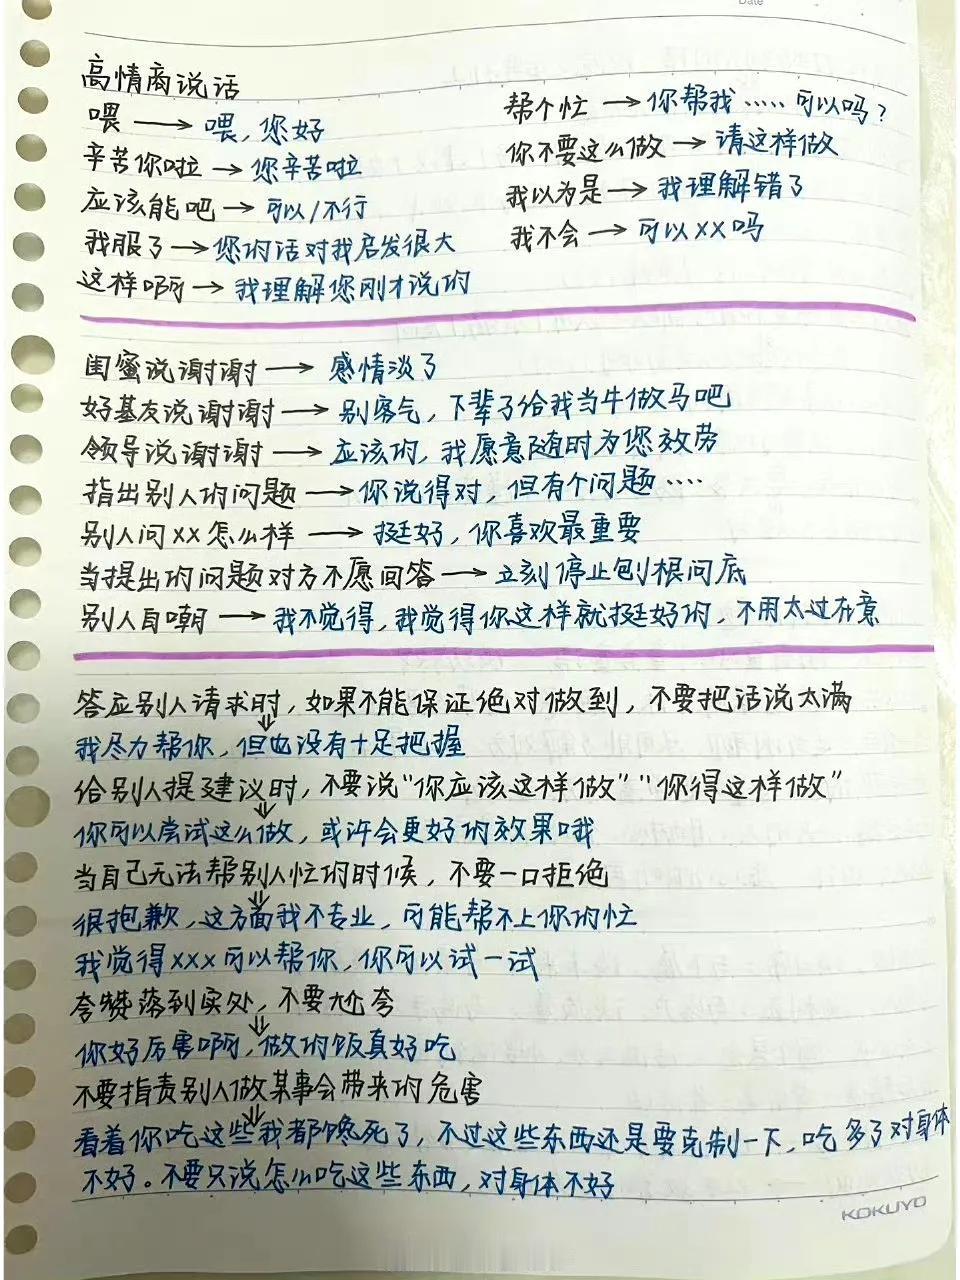 Date
高情商说话
喂 → 喂，您好
辛苦你啦 → 您辛苦啦
应该能吧 → 可以/不行
我服了 → 您的话对我启发很大
这样啊 → 我理解您刚才说的
帮个忙 → 你帮我……可以吗？
你不要这么做 → 请这样做
我以为是 → 我理解错了
我不会 → 可以XX吗
闺蜜说谢谢 → 感情淡了
好基友说谢谢 → 别客气，下辈子给我当牛做马吧
领导说谢谢 → 应该的，我愿意随时为您效劳
指出别人的问题 → 你说得对，但有个问题……
别人问XX怎么样 → 挺好，你喜欢最重要
当提出的问题对方不愿回答 → 立刻停止刨根问底
别人自嘲 → 我不觉得，我觉得你这样就挺好的，不用太过在意
答应别人请求时，如果不能保证绝对做到，不要把话说太满
⇓
我尽力帮你，但也没有十足把握
给别人提建议时，不要说“你应该这样做”“你得这样做”
⇓
你可以尝试这么做，或许会更好的效果哦
当自己无法帮别人忙的时候，不要一口拒绝
⇓
很抱歉，这方面我不专业，可能帮不上你的忙
我觉得XXX可以帮你，你可以试一试
夸赞落到实处，不要尬夸
⇓
你好厉害啊，做的饭真好吃
不要指责别人做某事会带来的危害
⇓
看着你吃这些我都馋死了，不过这些东西还是要克制一下，吃多了对身体
不好。不要只说怎么吃这些东西，对身体不好
KOKUYO